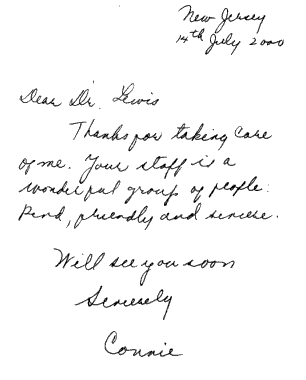 New Jersey
14th July 2000
Dear Dr. Lewis
Thanks for taking care
of me. Your staff is a
wonderful group of people:
kind, friendly and sincere.
Will see you soon
Sincerely
Connie